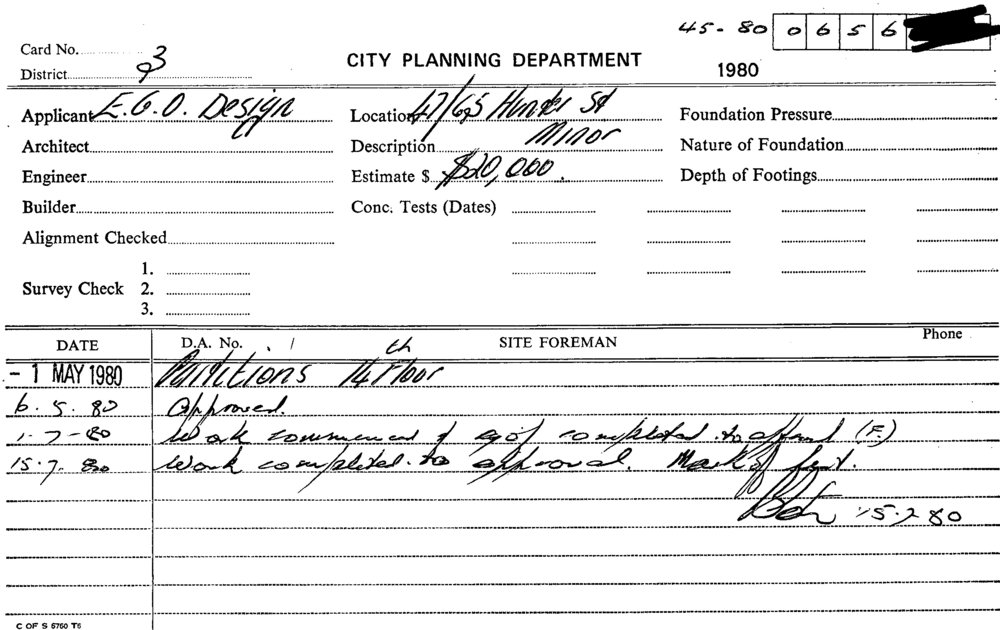 45-80 0656
Card No.
District 93
CITY PLANNING DEPARTMENT
1980
Applicant E.G.O. Design
Location 47/65 Hunter St
Foundation Pressure
Architect
Description Minor
Nature of Foundation
Engineer
Estimate $ $20,000.
Depth of Footings
Builder
Conc. Tests (Dates)
Alignment Checked
1.
Survey Check 2.
3.
DATE D.A. No. SITE FOREMAN Phone
- 1 MAY 1980 Partitions 14th Floor
6.5.80 Approved.
1-7-80 Work commenced completed to (F.)
15.7.80 Work completed to approval. Mark off
15.7.80
C OF S 6760 T6